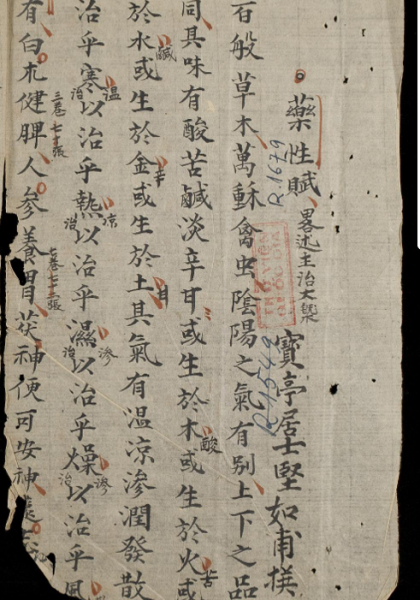 藥性賦 畧述主治大槩 寶亭居士堅如甫撰
R.1679
R.1549
百般草木萬穌禽虫陰陽之氣有别上下之品
同具味有酸苦鹹淡辛甘或生於木或生於火或
酸
苦
於水或生於金或生於土其氣有温凉滲潤發散
鹹
辛
甘
治乎寒以治乎熱以治乎濕以治乎燥以治乎風
温
治
凉
治
滲
治
滲
治
有白朮健脾人參養胃茯神便可安神遠
三卷七十張